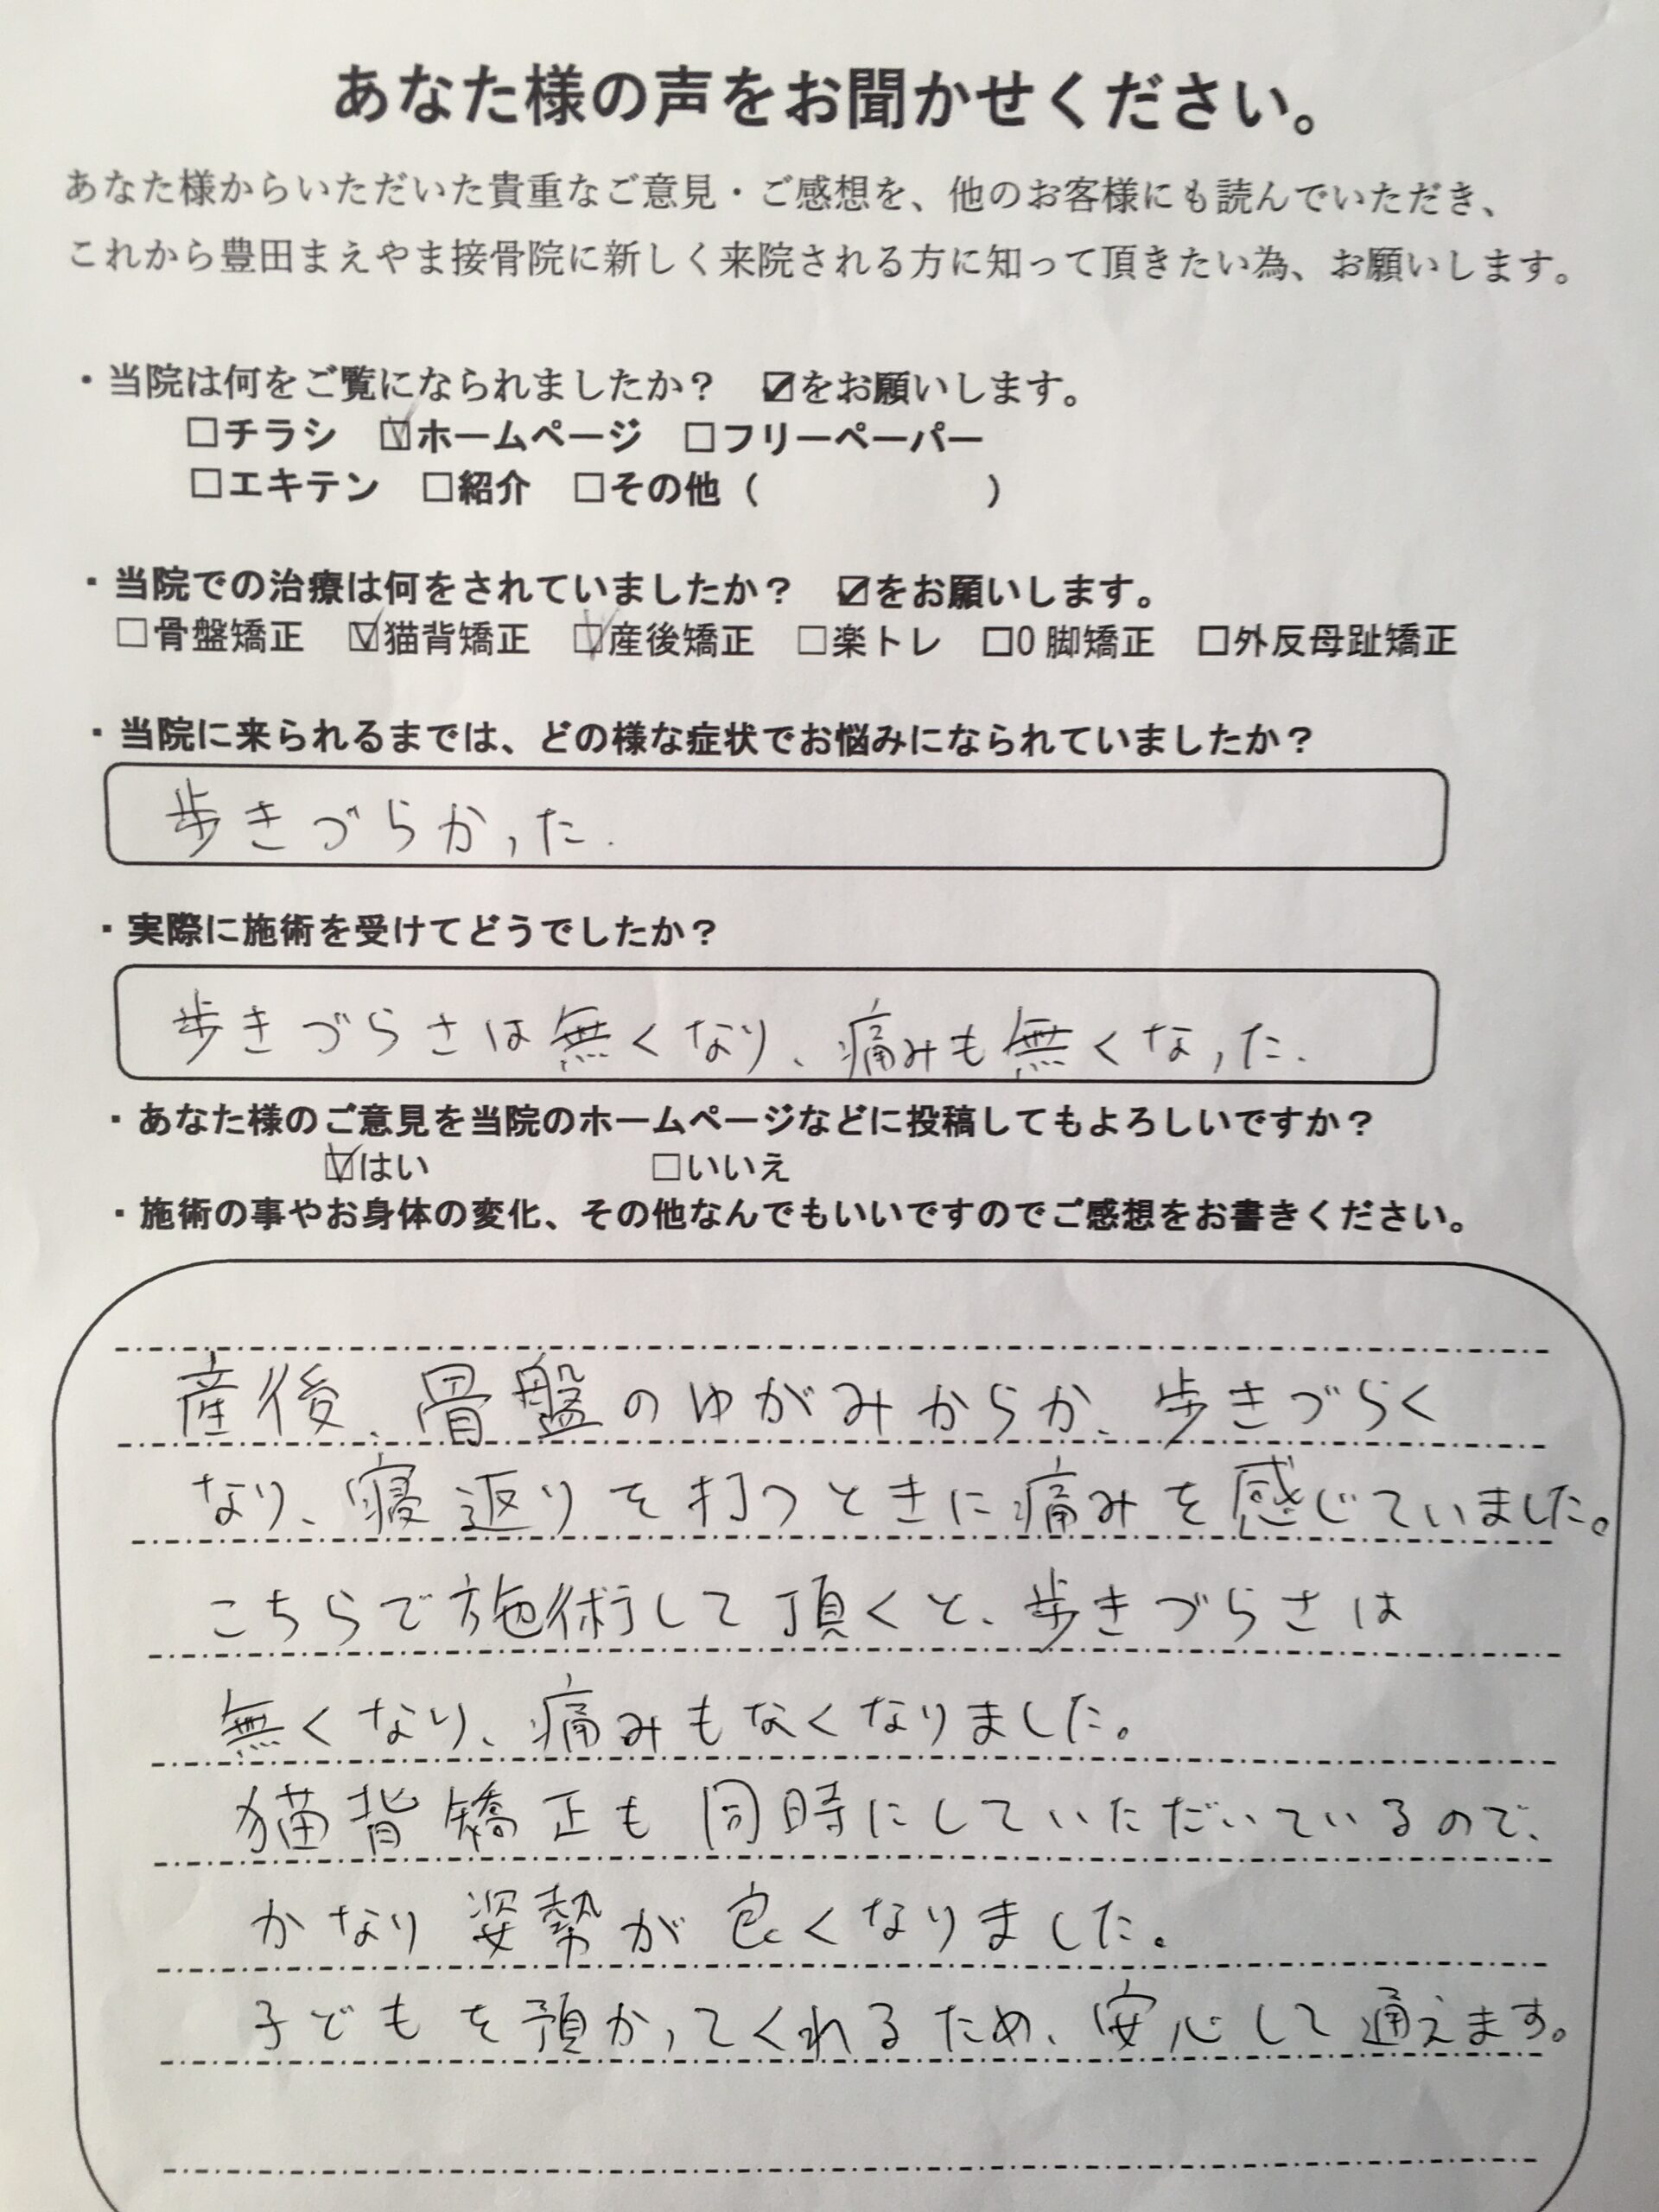 あなた様の声をお聞かせください。
あなた様からいただいた貴重なご意見・ご感想を、他のお客様にも読んでいただき、
これから豊田まえやま接骨院に新しく来院される方に知って頂きたい為、お願いします。
・当院は何をご覧になられましたか？　☑をお願いします。
□チラシ　☑ホームページ　□フリーペーパー
□エキテン　□紹介　□その他（　　　　　　）
・当院での治療は何をされていましたか？　☑をお願いします。
□骨盤矯正　☑猫背矯正　☑産後矯正　□楽トレ　□O脚矯正　□外反母趾矯正
・当院に来られるまでは、どの様な症状でお悩みになられていましたか？
歩きづらかった.
・実際に施術を受けてどうでしたか？
歩きづらさは無くなり、痛みも無くなった.
・あなた様のご意見を当院のホームページなどに投稿してもよろしいですか？
☑はい　□いいえ
・施術の事やお身体の変化、その他なんでもいいですのでご感想をお書きください。
産後、骨盤のゆがみからか、歩きづらく
なり、寝返りを打つときに痛みを感じていました。
こちらで施術して頂くと、歩きづらさは
無くなり、痛みもなくなりました。
猫背矯正も同時にしていただいているので、
かなり姿勢が良くなりました。
子どもを預かってくれるため、安心して通えます。